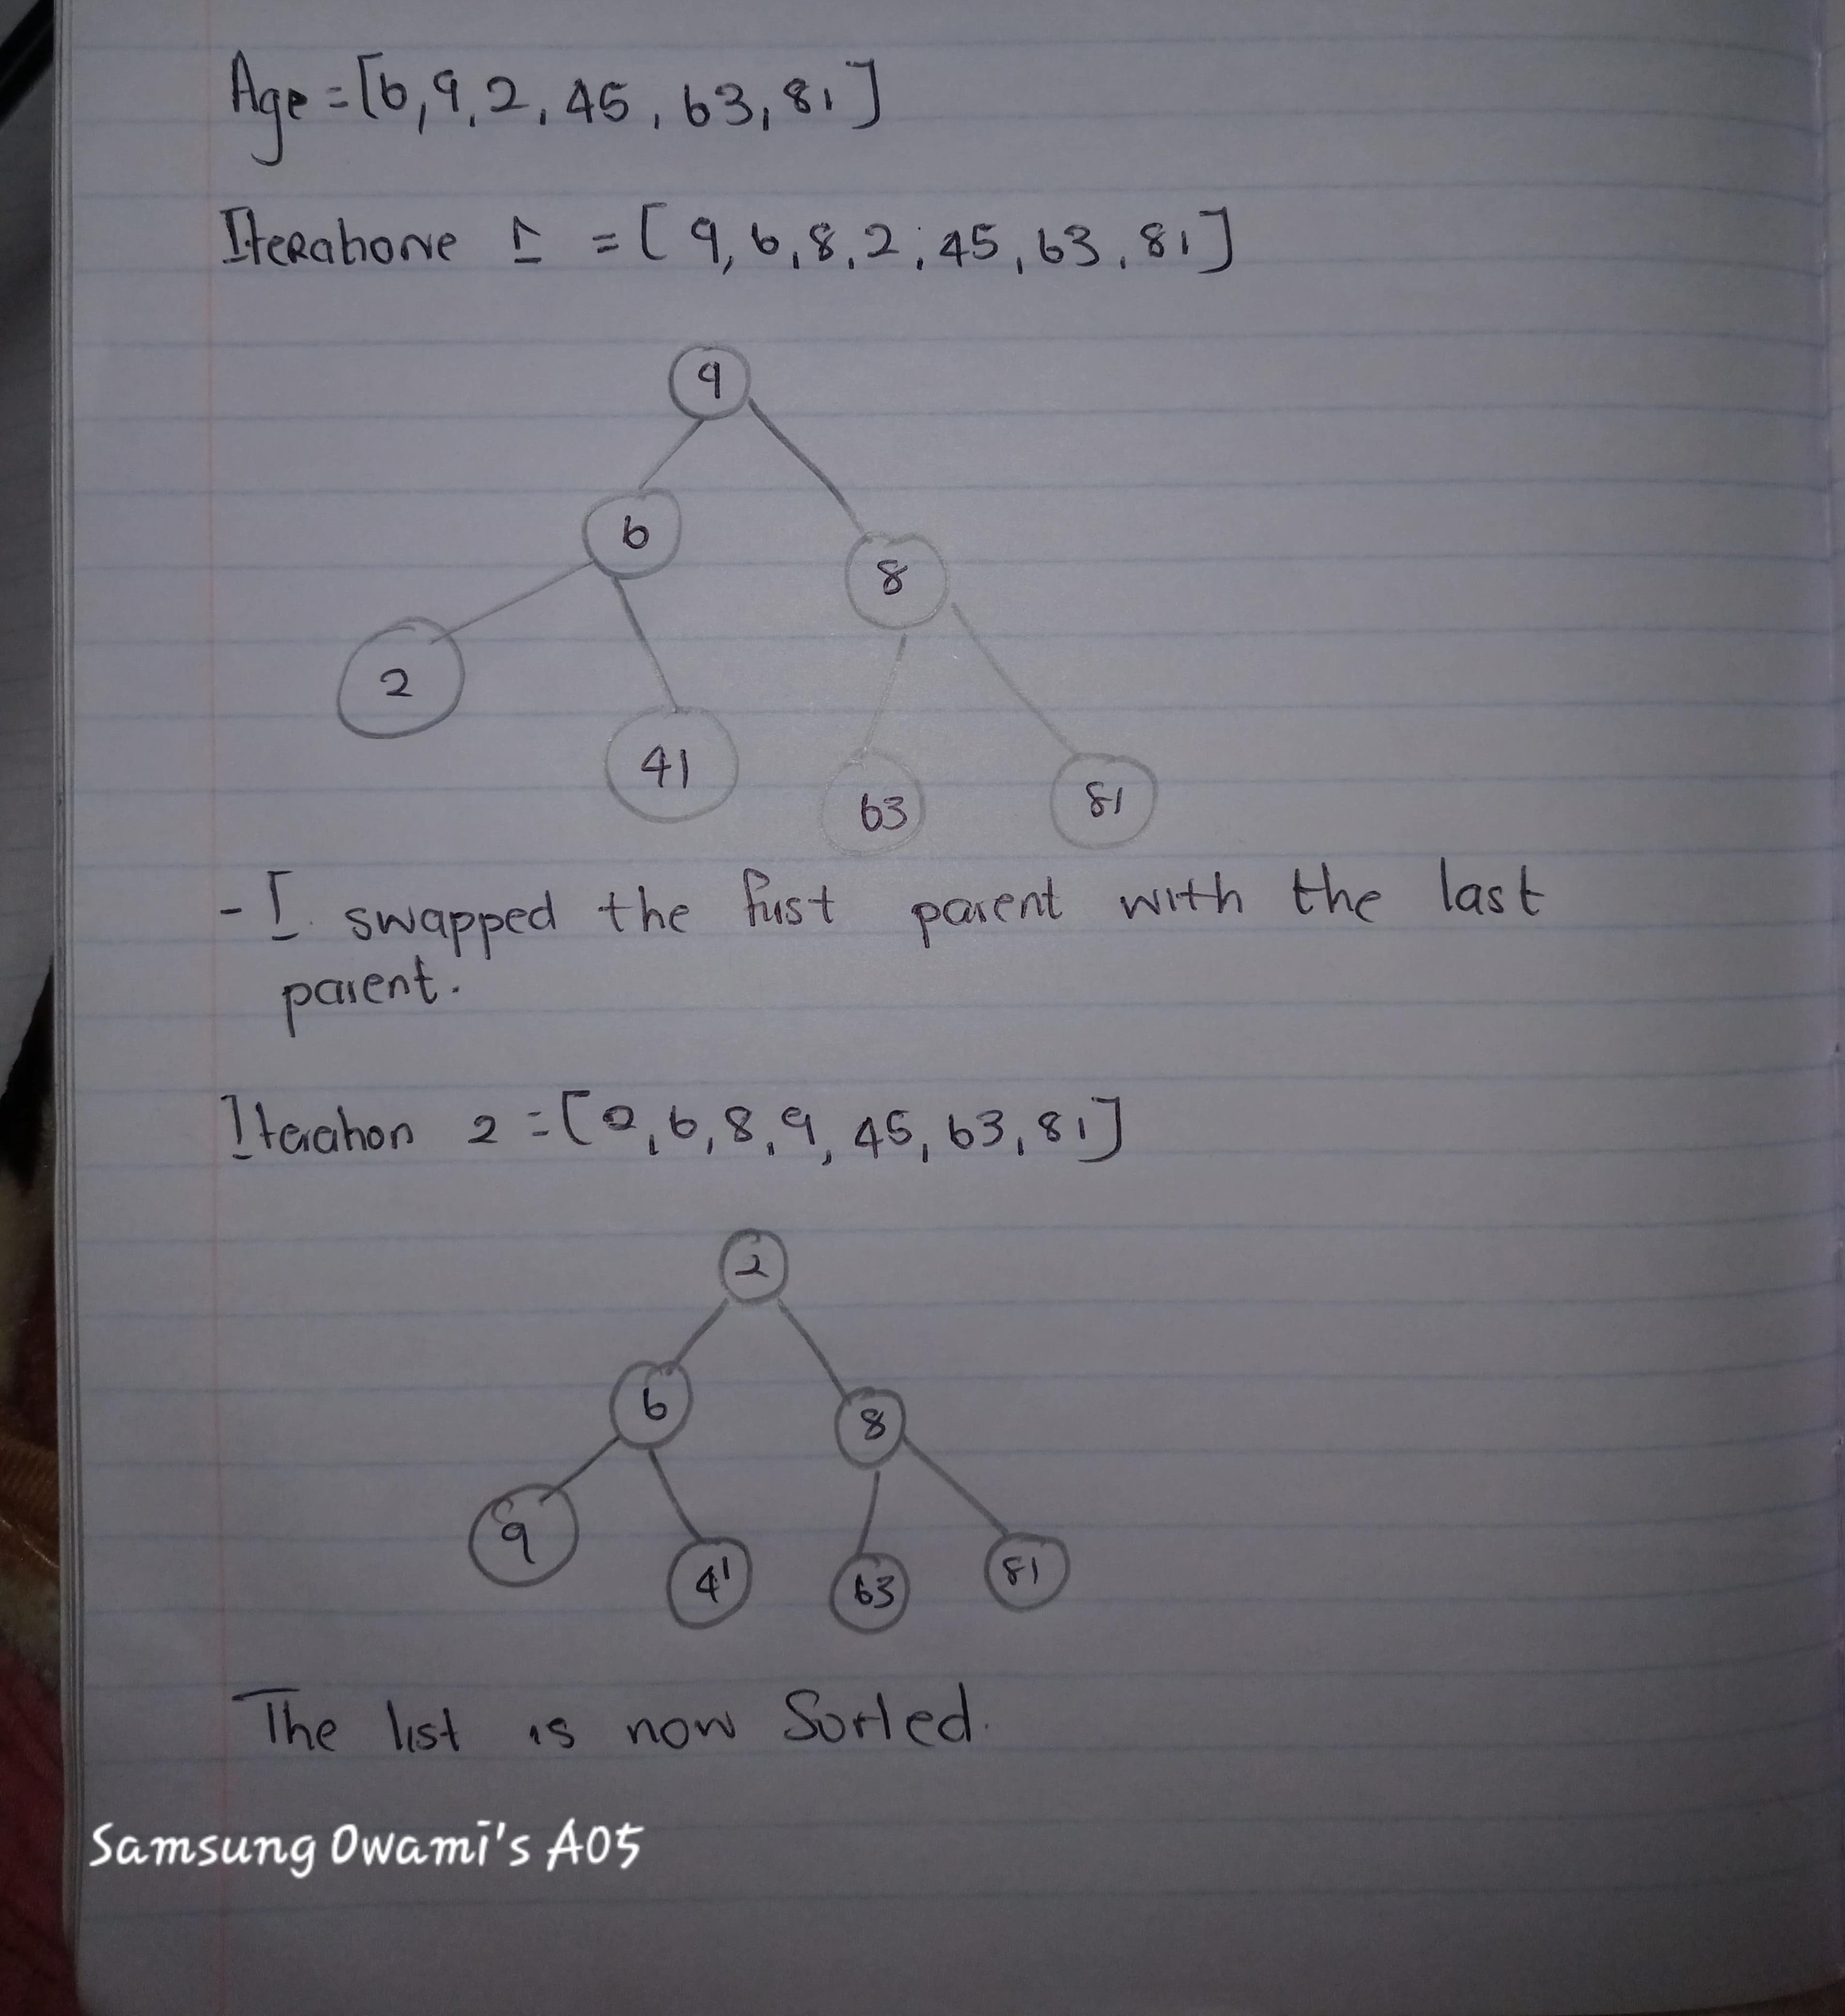 Age = [6, 9, 2, 45, 63, 81]
Iterahone 1 = [9, 6, 8, 2, 45, 63, 81]
9
6
8
2
41
63
81
- I swapped the first parent with the last
parent.
Iteration 2 = [2, 6, 8, 9, 45, 63, 81]
2
6
8
9
41
63
81
The list is now Sorted.
Samsung Owami's A05